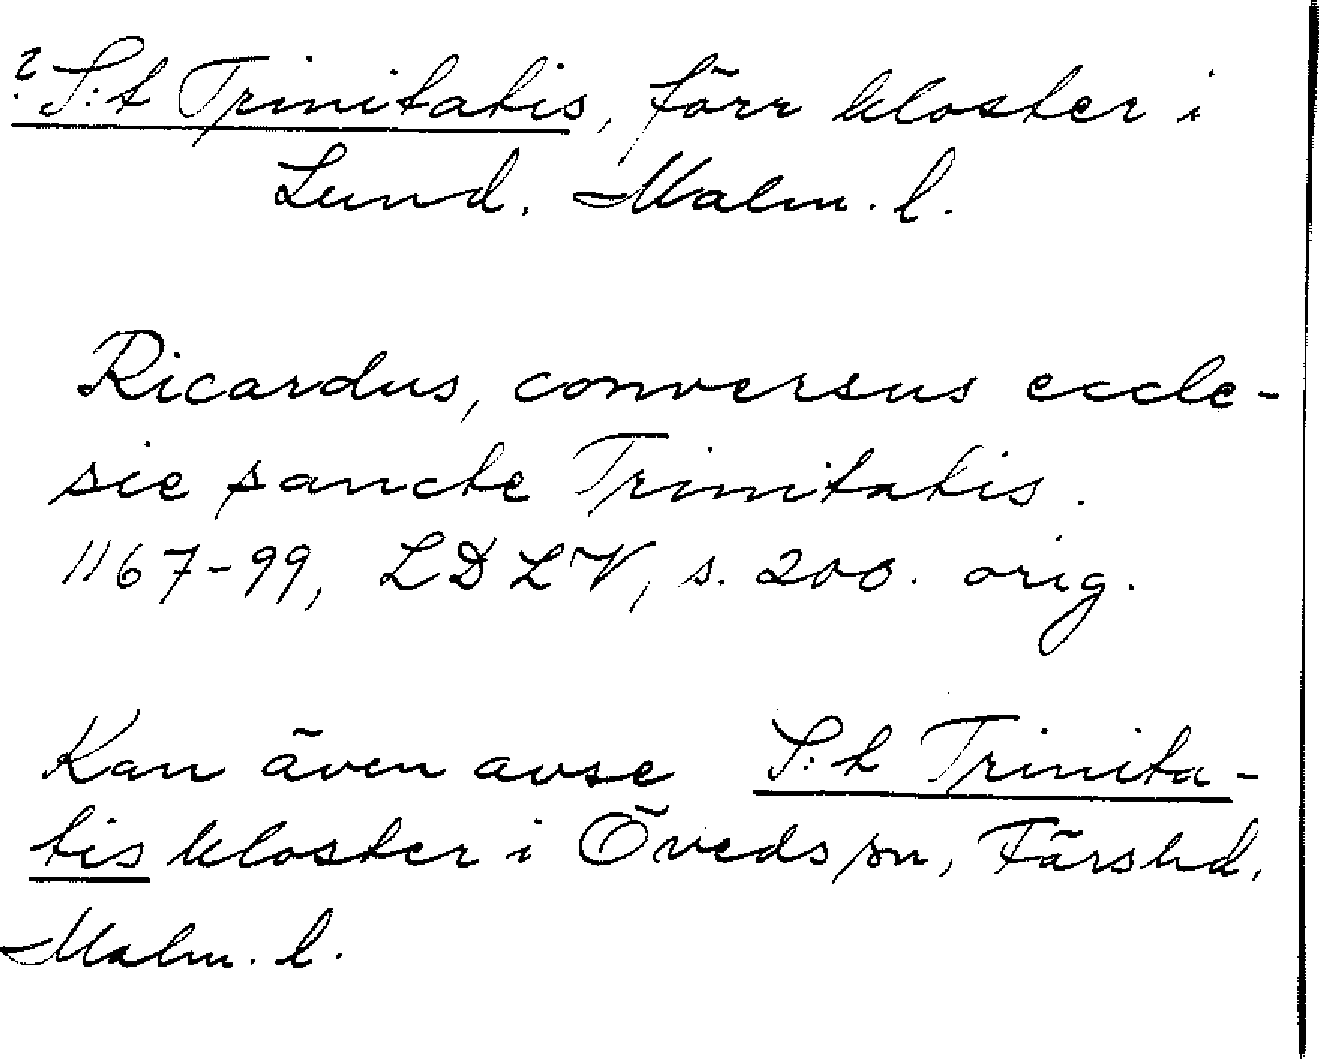 ? S:t Trinitatis, förr kloster i
Lund. Malm. l.
Ricardus, conversus eccle-
sie sancte Trinitatis.
1167-99, LDLV, s. 200. orig.
Kan även avse S:t Trinita-
tis kloster i Öveds sn, Färs hd,
Malm. l.